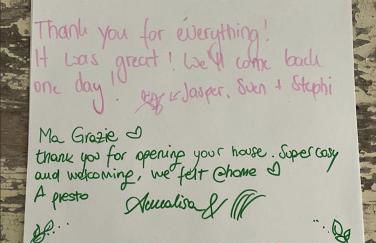 Thank you for everything!
It was great! We'll come back
one day! Jasper, Sven + Stephi
Ma Grazie ♡
thank you for opening your house. Super cosy
and welcoming, we felt @home ♡
A presto
Annalisa &